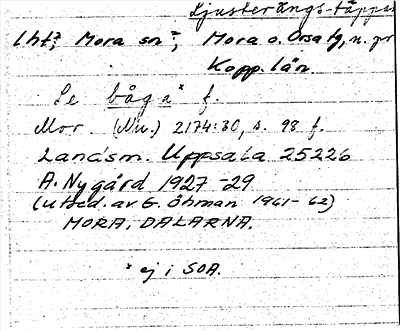 Ljusterängs-täppan
Lht?, Mora sn?, Mora o. Orsa tg, n. pr
Kopp. län.
Se båga* f.
Mor. (Nu.) 2174:30, s. 98 f.
Landsm. Uppsala 25226
A. Nygård 1927-29
(utred. av G. Öhman 1961-62)
MORA, DALARNA.
* ej i SOA.